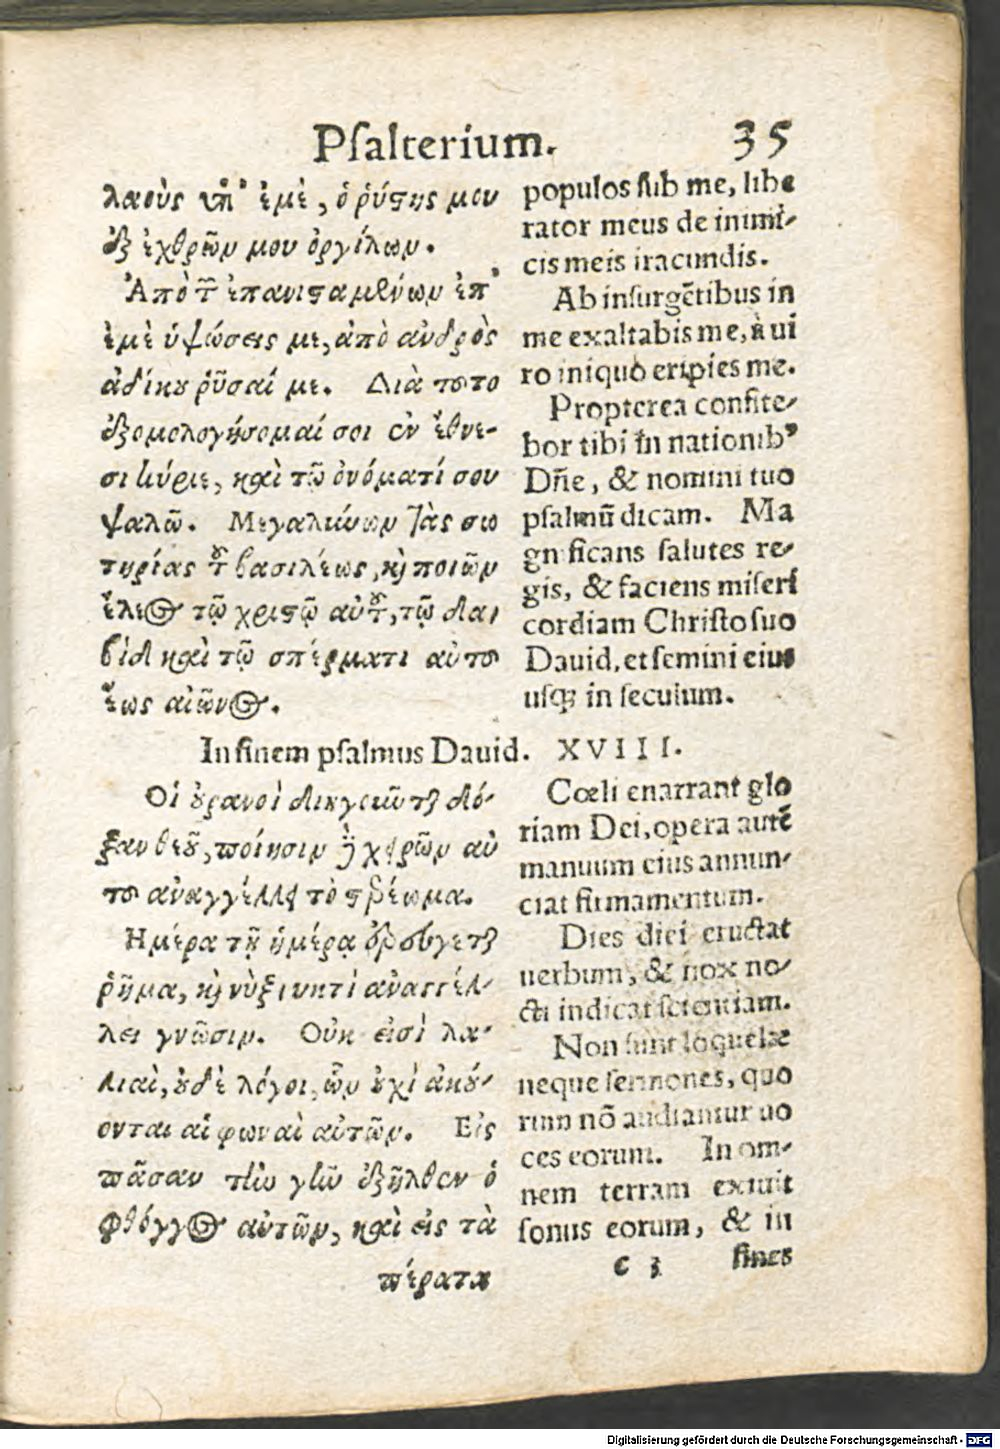 Psalterium. 35
λαοὺς ὑπ' ἐμὲ, ὁ ῥύστης μου
ἐξ ἐχθρῶν μου ὀργίλων.
Ἀπὸ τῶν ἐπανισταμένων ἐπ'
ἐμὲ ὑψώσεις με, ἀπὸ ἀνδρὸς
ἀδίκου ῥῦσαί με. Διὰ τοῦτο
ἐξομολογήσομαί σοι ἐν ἔθνε-
σι κύριε, καὶ τῷ ὀνόματί σου
ψαλῶ. Μεγαλύνων τὰς σω
τηρίας τοῦ βασιλέως, καὶ ποιῶν
ἔλεος τῷ χριστῷ αὐτοῦ, τῷ δαι
βὶδ καὶ τῷ σπέρματι αὐτοῦ
ἕως αἰῶνος.
populos sub me, libe
rator meus de inimi-
cis meis iracundis.
Ab insurgẽtibus in
me exaltabis me, à ui
ro iniquo eripies me.
Propterea confite-
bor tibi in nationibꝰ
Dñe, & nomini tuo
psalmũ dicam. Ma
gnificans salutes re-
gis, & faciens miseri
cordiam Christo suo
Dauid, et semini eius
usq; in seculum.
In finem psalmus Dauid. XVIII.
Οἱ οὐρανοὶ διηγοῦνται δό-
ξαν θεοῦ, ποίησιν δὲ χειρῶν αὐ
τοῦ ἀναγγέλλει τὸ στερέωμα.
Ἡμέρα τῇ ἡμέρᾳ ἐρεύγεται
ῥῆμα, καὶ νὺξ νυκτὶ ἀναγγέλ-
λει γνῶσιν. Οὐκ εἰσὶ λα-
λιαὶ, οὐδὲ λόγοι, ὧν οὐχὶ ἀκού-
ονται αἱ φωναὶ αὐτῶν. Εἰς
πᾶσαν τὴν γῆν ἐξῆλθεν ὁ
φθόγγος αὐτῶν, καὶ εἰς τὰ
πέρατα
Cœli enarrant glo
riam Dei, opera autẽ
manuum eius annun-
ciat firmamentum.
Dies diei eructat
uerbum, & nox no-
cti indicat scientiam.
Non sunt loquelæ
neque sermones, quo
rum nõ audiantur uo
ces eorum. In om-
nem terram exiuit
sonus eorum, & in
c 3 fines
Digitalisierung gefördert durch die Deutsche Forschungsgemeinschaft - DFG